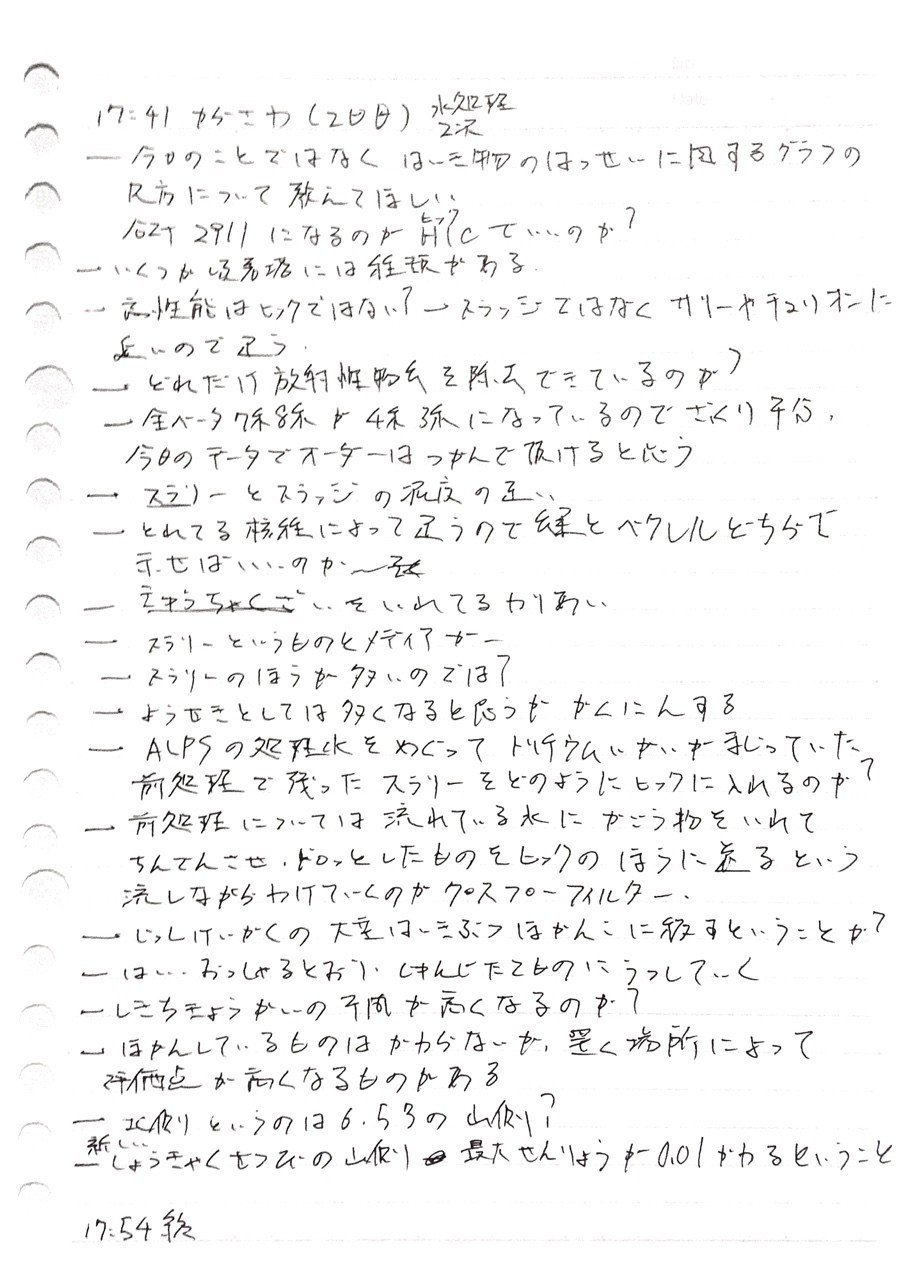 17:41 からさわ(2回目) 水処理
2次
― 今日のことではなく はいき物のはっせいに関するグラフの
見方について教えてほしい
合計 2911 になるのが HIC でいいのか?
ヒック
― いくつか吸着塔には種類がある
― 高性能はヒックではない? ― スラッジではなくサリーやキュリオンに
近いので違う.
― どれだけ放射性物質を除去できているのか?
― 全ベータ7乗8乗が4乗3乗になっているのでざっくり
今日のデータでオーダーはつかんで頂けると思う
― スラリーとスラッジの濃度の違い
― とれてる核種によって違うので線とベクレルどちらで
示せばいいのか
― きゅうちゃくざいをいれてるわりあい
― スラリーというものとメディアが―
― スラリーのほうが多いのでは?
― ようせきとしては多くなると思うが かくにんする
― ALPSの処理水をめぐって トリチウムいがいがまじっていた
前処理で残ったスラリーをどのようにヒックに入れるのか?
― 前処理については流れている水にかごう物をいれて
ちんでんさせ.ドロッとしたものをヒックのほうに送るという
流しながらわけていくのがクロスフローフィルター.
― じっしけいかくの 大型はいきぶつほかんこに移すということか?
― はい.おっしゃるとおり.じゅんじたてものにうつしていく
― しきちきょうかいの が高くなるのか?
― ほかんしているものはかわらないが.置く場所によって
評価点が高くなるものがある
― 北側というのは6.53の山側?
新しい
― しょうきゃくせつびの山側 最大せんりょうが0.01かわるということ
17:54 終